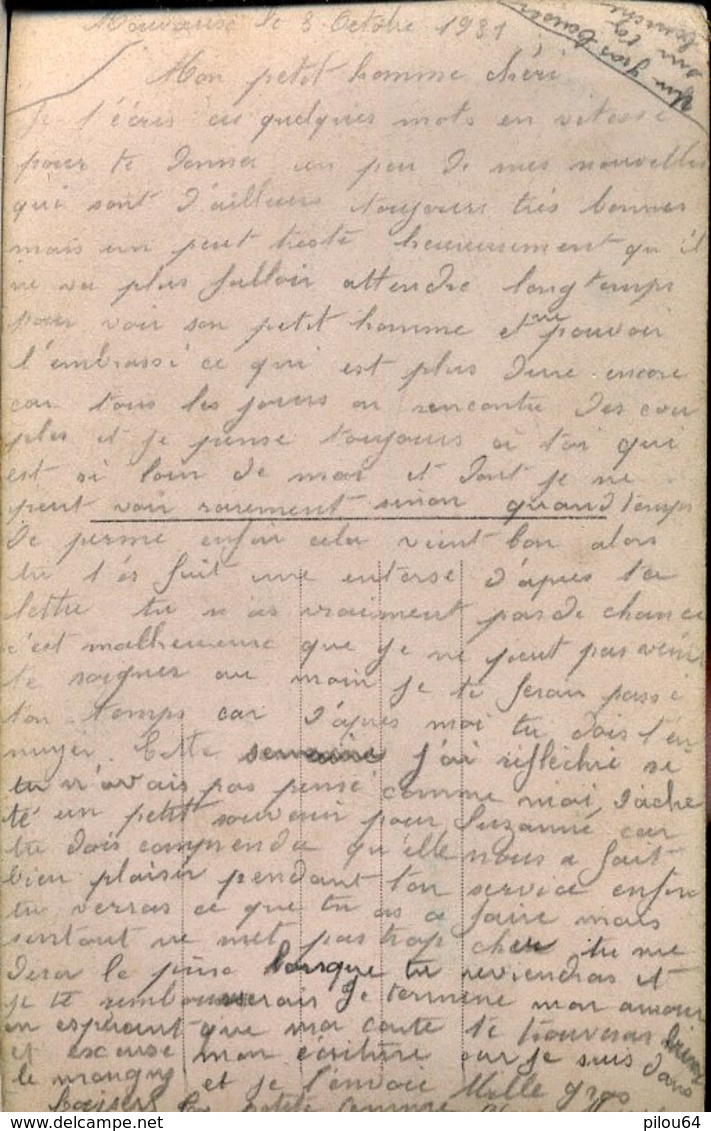 le 3 Octobre 1931
Un gros baiser
sur ta
bouche
Mon petit homme chéri
Je t'écris ces quelques mots en vitesse
pour te donner un peu de mes nouvelles
qui sont d'ailleurs toujours très bonnes
mais un peut triste heureusement qu'il
ne va plus falloir attendre longtemps
pour voir son petit homme et ne pouvoir
l'embrassé ce qui est plus dure encore
car tous les jours on rencontre des cou
ples et je pense toujours à toi qui
est si loin de moi et dont je ne
peut voir rarement sinon quand temps
de perme enfin cela vient bon alors
tu t'es fait une entorse d'après ta
lettre tu n'as vraiment pas de chance
c'est malheureuse que je ne peut pas venir
te soigner au moin je te ferais passé
ton temps car d'après moi tu dois t'en
nuyer Cette semaine j'ai réfléchie si
tu n'avais pas pensé comme moi d'ache
té un petit souvenir pour Suzanne car
tu dois comprendre qu'elle nous a fait
bien plaisir pendant ton service enfin
tu verras ce que tu as a faire mais
surtout ne met pas trop cher tu me
dira le prix lorsque tu reviendras et
je te rembourserais Je termine mon amour
en espérant que ma carte te trouveras
et excuse mon écriture car je suis dans
le et je t'envoie Mille gros
baisers Ta petite femme
pilou64